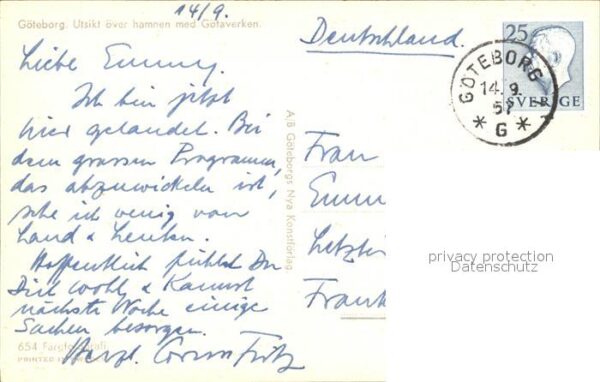 14/9.
Göteborg. Utsikt över hamnen med Götaverken.
Liebe Emmy.
Ich bin jetzt
hier gelandet. Bei
dem grossen Programm,
das abzuwickeln ist,
sehe ich wenig von
Land & Leuten.
Hoffentlich fühlst Du
Dich wohl & kannst
nächste Woche einige
Sachen besorgen.
Herzl. Fritz
654
PRINTED IN
A/B Göteborgs Nya Konstförlag.
Deutschland.
25
SVERIGE
GÖTEBORG
14. 9.
57
* G *
Frau
Emm
Frank
privacy protection
Datenschutz